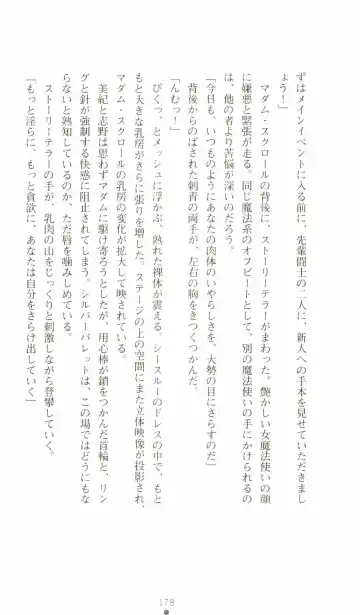 ずはメインイベントに入る前に、先輩闘士の二人に、新人への手本を見せていただきまし
ょう！」
　マダム・スクロールの背後に、ストーリーテラーがまわった。艶かしい女魔法使いの顔
に嫌悪と緊張が走る。同じ魔法系のオフビートとして、別の魔法使いの手にかけられるの
は、他の者より苦悩が深いのだろう。
「今日も、いつものようにあなたの肉体のいやらしさを、大勢の目にさらすのだ」
　背後からのばされた刺青の両手が、左右の胸をきつくつかんだ。
「んむっ！」
　びくっ、とメッシュに浮かぶ、熟れた裸体が震える。シースルーのドレスの中で、もと
もと大きな乳房がさらに張りを増した。ステージの上の空間にまた立体映像が投影され、
マダム・スクロールの乳房の変化が拡大して映されている。
　美紀と志野がマダムに駆け寄ろうとしたが、用心棒が鎖をつかんだ首輪と、リン
グと針が強制する快感に阻止されてしまう。シルバーバレットは、この場ではどうにもな
らないと熟知しているのか、ただ唇を噛みしめている。
　ストーリーテラーの手が、乳肉の山をじっくりと刺激しながら登攀していく。
「もっと淫らに、もっと貪欲に、あなたは自分をさらけ出していく」
178